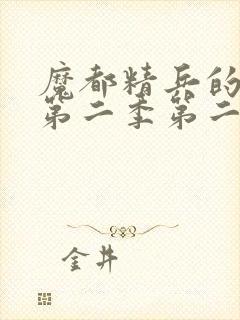 魔都精兵的
第二季第二
金井